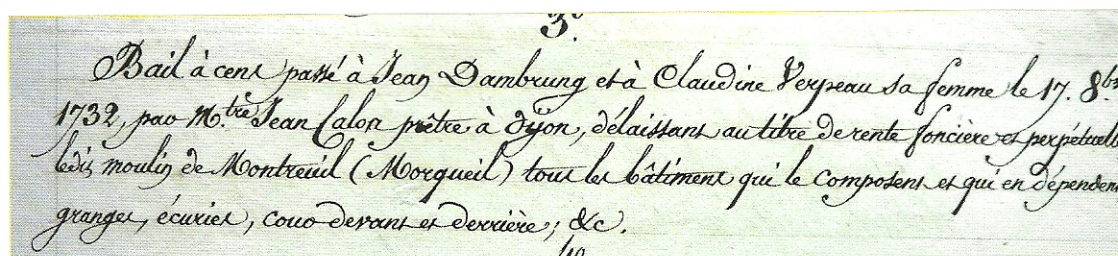 3º.
Bail à cens passé à Jean Dambrung et à Claudine Verpeau sa femme le 17. 8bre
1732, par M.tre Jean Calon prêtre à Dijon, délaissant au titre de rente foncière et perpétuelle
ledit moulin de Montreuil (Morqueil) tous les bâtimens qui le composent et qui en dépendent
granges, écuries, cour devant et derrière; &c.